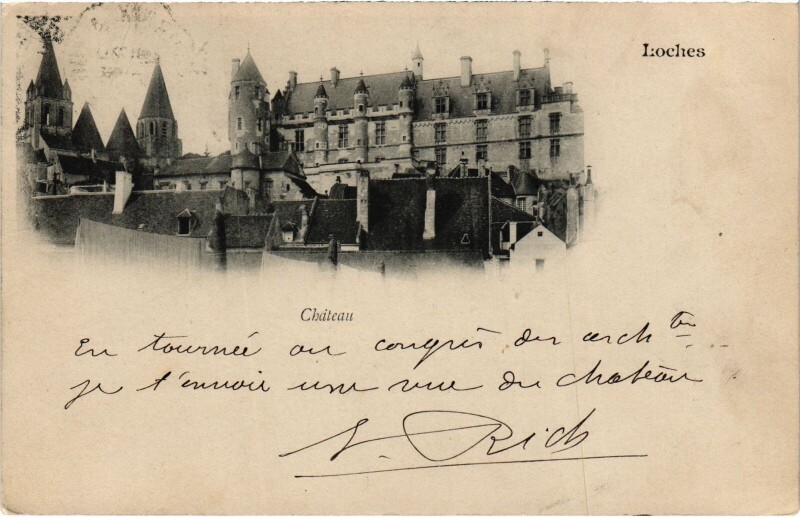 Loches
Château
En tournée au congrès des arch tes
je t'envoie une vue du chateau
Rich